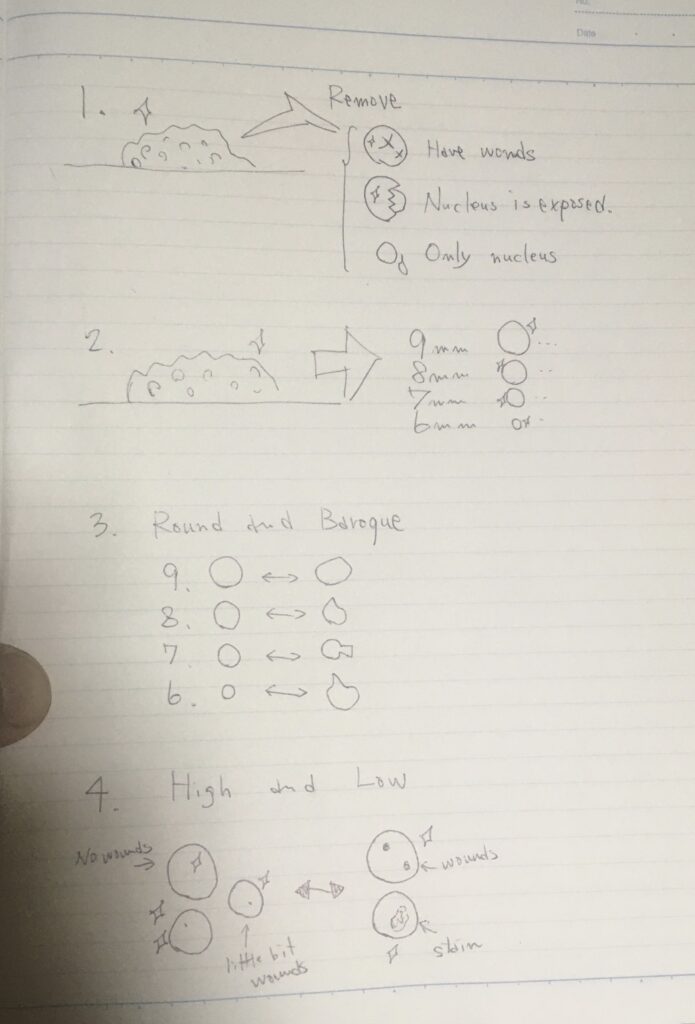 No.
Date
1.
Remove
Have wonds
Nucleus is exposed.
Only nucleus
2.
9mm
8mm
7mm
6mm
3. Round and Baroque
9.
8.
7.
6.
4. High and Low
No wounds
wounds
little bit
wounds
stain